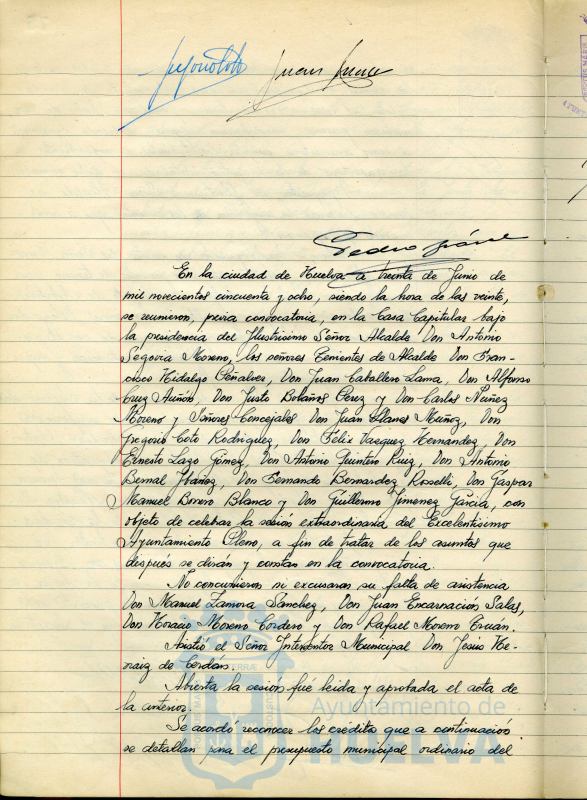 Juan
Pedro
En la ciudad de Huelva a treinta de Junio de
mil novecientos cincuenta y ocho, siendo la hora de las veinte,
se reunieron, previa convocatoria, en la Casa Capitular bajo
la presidencia del Ilustrísimo Señor Alcalde Don Antonio
Segovia Moreno, los señores Tenientes de Alcalde Don Fran-
cisco Hidalgo Peñalver, Don Juan Caballero Lama, Don Alfonso
Cruz Auñón, Don Justo Bolaños Pérez y Don Carlos Núñez
Moreno y Señores Concejales Don Juan Llanes Muñoz, Don
Gregorio Coto Rodríguez, Don Félix Vazquez Hernandez, Don
Ernesto Lazo Gómez, Don Antonio Quintero Ruiz, Don Antonio
Bernal Ibáñez, Don Fernando Bernardez Roselli, Don Gaspar
Manuel Borrero Blanco y Don Guillermo Jimenez García, con
objeto de celebrar la sesión extraordinaria del Excelentísimo
Ayuntamiento Pleno, a fin de tratar de los asuntos que
después se dirán y constan en la convocatoria.
No concurrieron ni excusaron su falta de asistencia
Don Manuel Zamora Sánchez, Don Juan Encarnación Salas,
Don Horacio Moreno Cordero y Don Rafael Moreno
Asistió el Señor Interventor Municipal Don Jesús He-
raiz de Cerdán.
Abierta la sesión fué leida y aprobada el acta de
la anterior.
Se acordó reconocer los créditos que a continuación
se detallan para el presupuesto municipal ordinario del
Ayuntamiento de
HUELVA